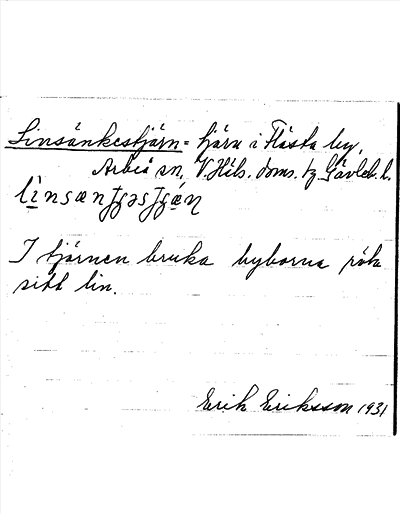 Linsänkestjärn = tjärn i Flästa by,
Arbrå sn, V. Häls. doms. tg Gävleb. l.
I tjärnen bruka byborna röta
sitt lin.
Erik Eriksson 1931